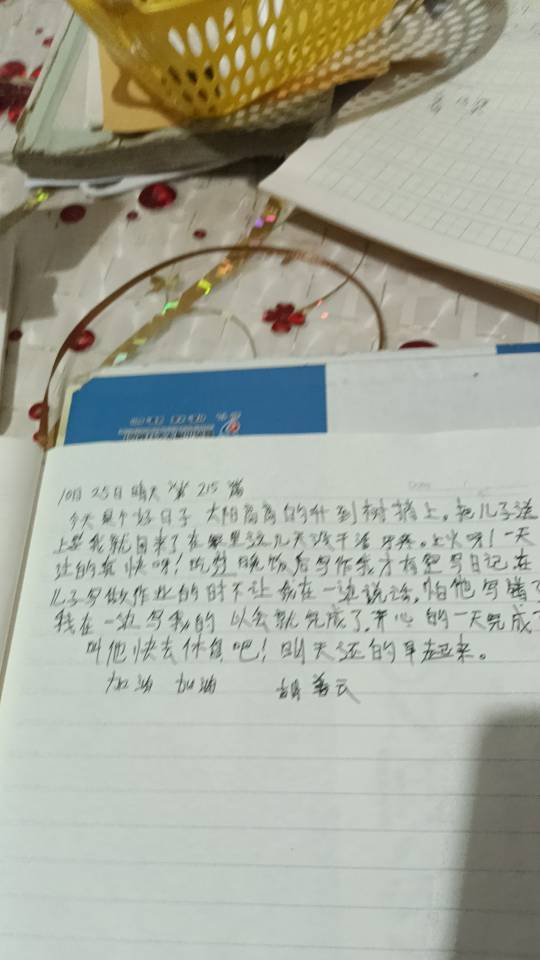 10月25日 晴天 第215篇
今天是个好日子 太阳高高的升到树梢上。把儿子送
上学我就回来了在家里这几天没干活 牙疼。上火呀！一天
过的真快呀！吃过晚饭后写作我才有空写日记，在
儿子写做作业的时不让我在一边说话，怕他写错了
我在一边写我的 以会就完成了，开心的一天完成了
叫他快去休息吧！明天还的早起来。
加油 加油